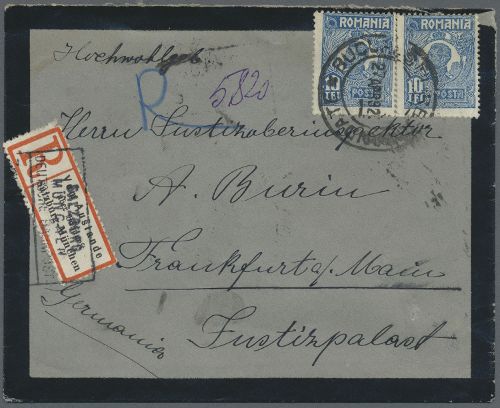 ROMANIA ROMANIA
POSTA POSTA
10 LEI 10 LEI
Hochwohlgeb
R 5820
Herrn Justizoberinspektor
A. Burin
Frankfurt a/ Main
Justizpalast
Germania
R
Vom Auslande
München